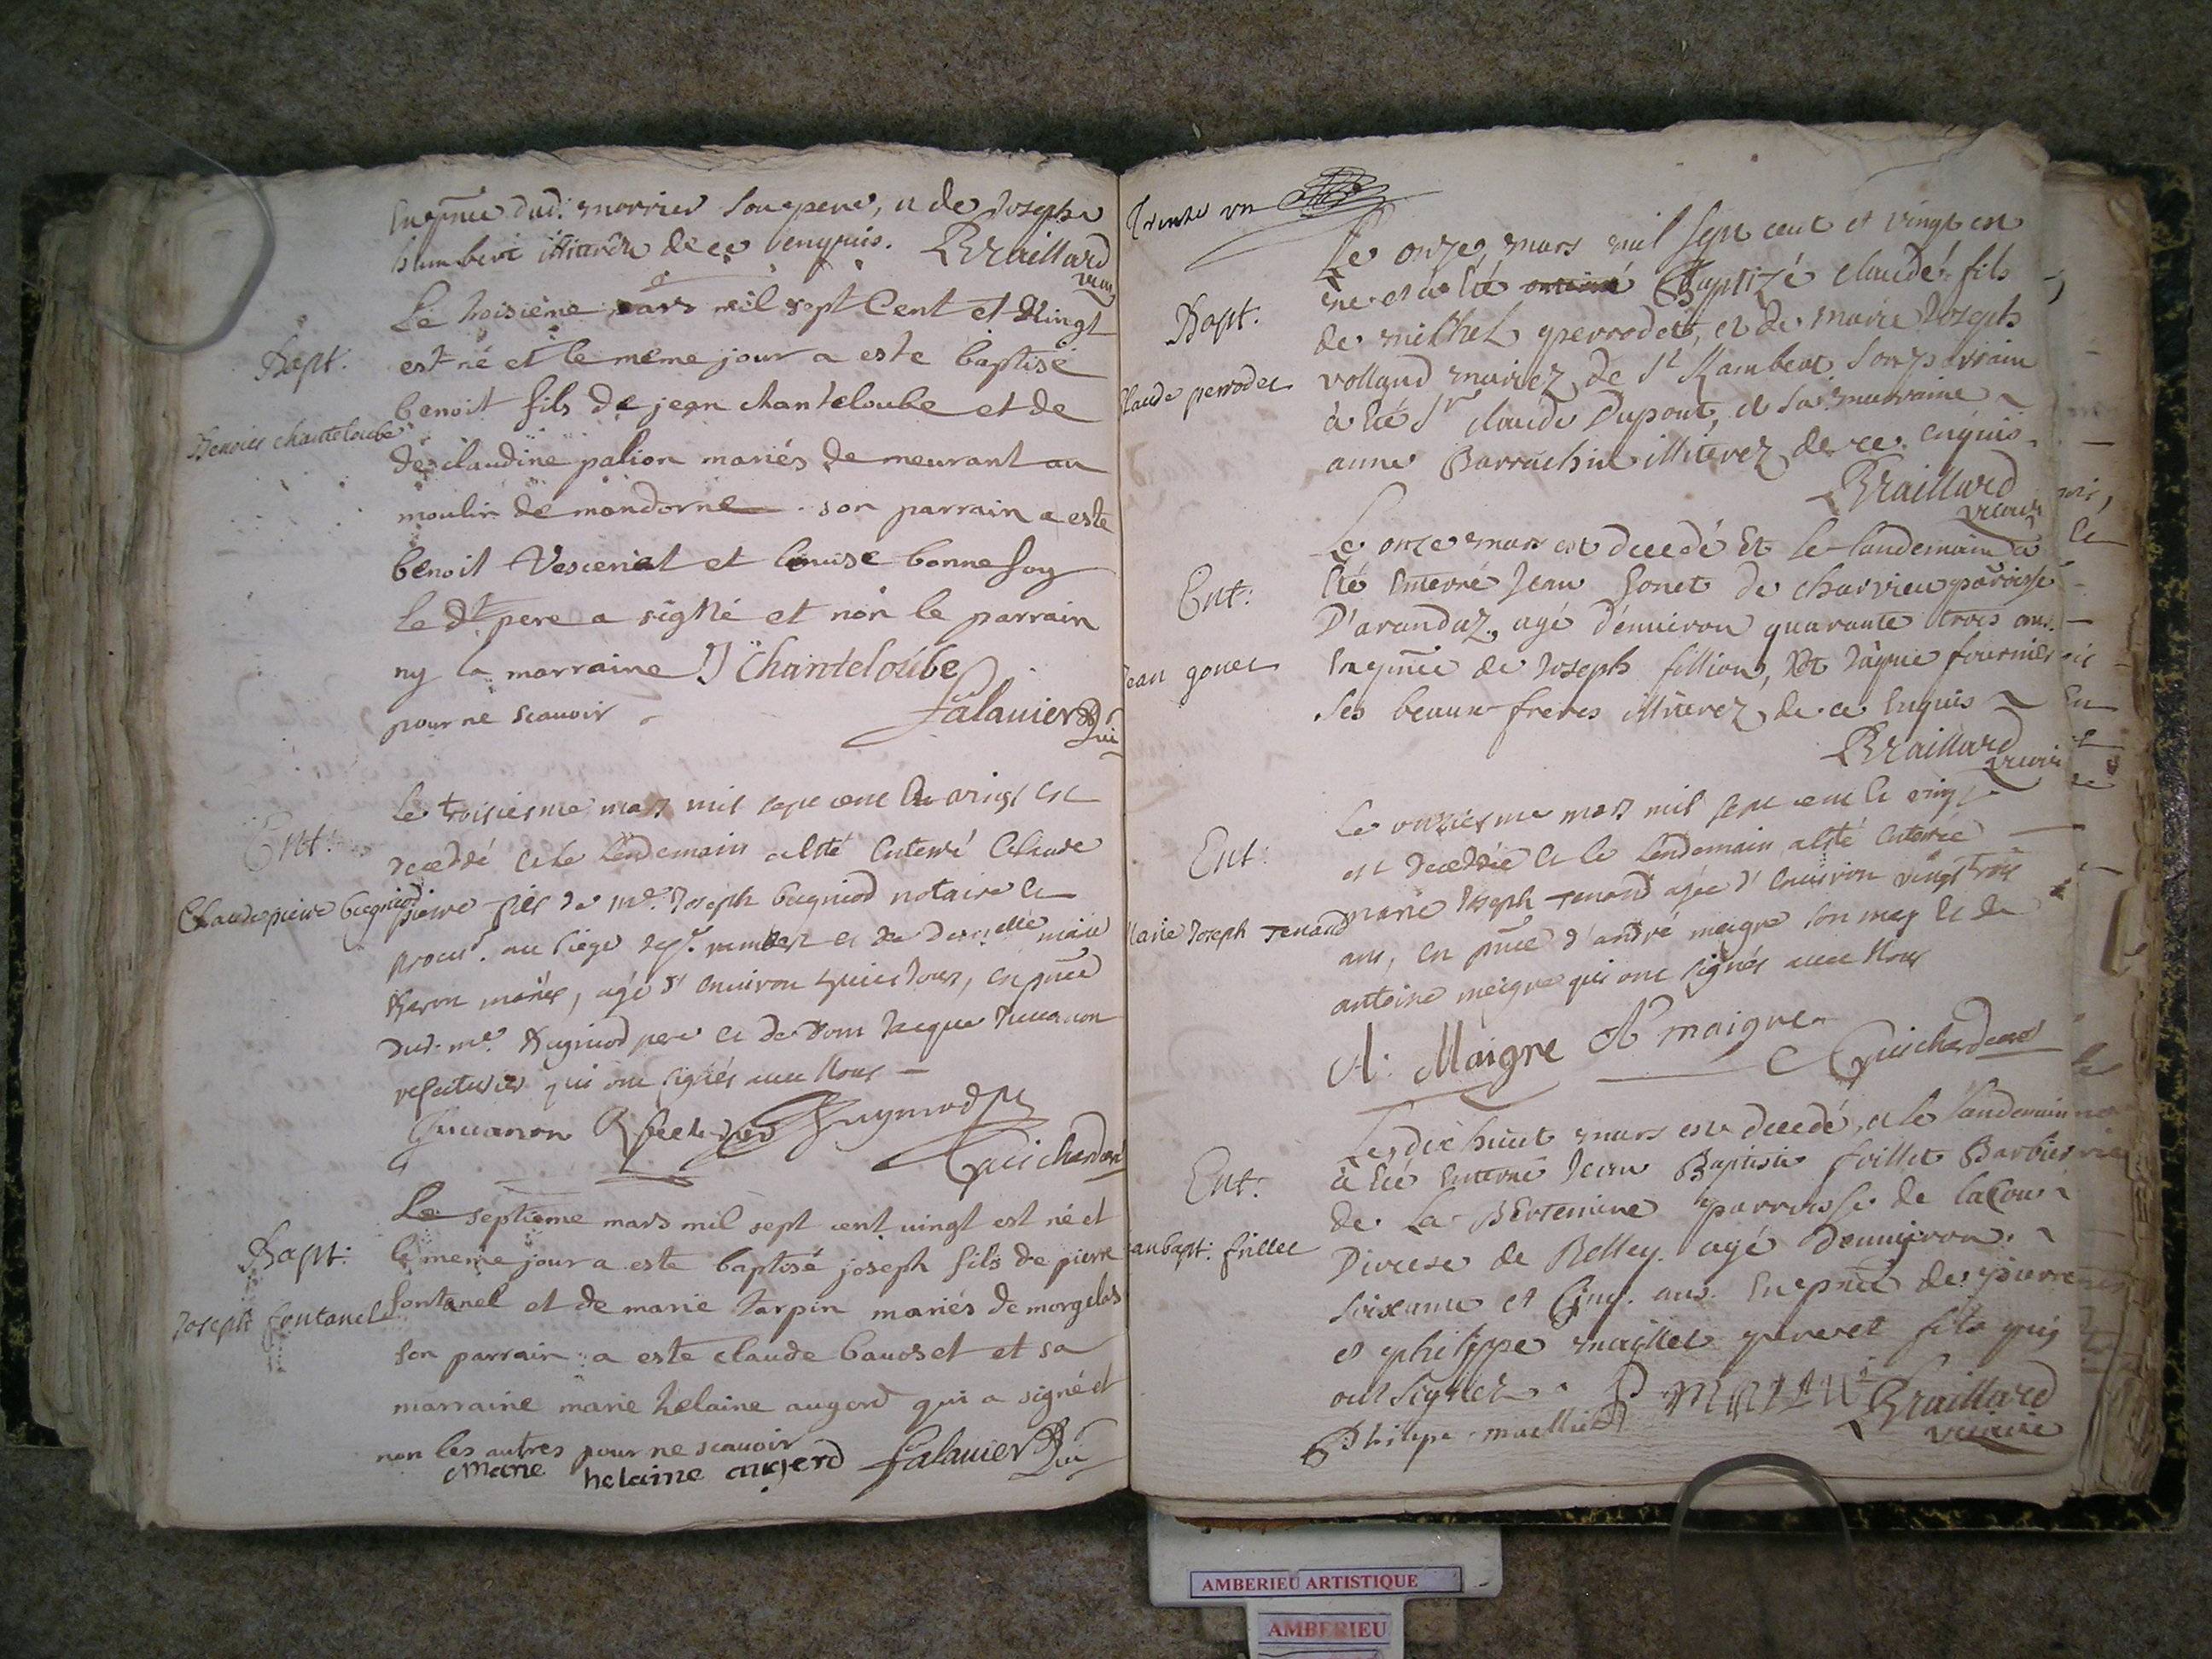 En pnce dud. morrier son pere, et de Joseph
humbert illiterez de ce enquis. BRaillard
vicaire
Bapt.
Benoist chanteloube
Le troisième mars mil sept Cent et Vingt
est né et le même jour a este baptisé
benoit fils de jean chanteloube et de
de claudine palion mariés demeurant au
moulin de mondorne son parrain a este
benoit Vescenat et louise bonne foy
le dt pere a signé et non le parrain
ny la marraine J Chanteloube
pour ne scauoir
falauier Vic
Ent:
Claude pierre bugniod
Le troisiesme mars mil sept cent et vingt est
decedé et le Lendemain a esté enterré Claude
pierre fils de me. Joseph bugniod notaire et
procur. au siege de st. rambert et de demelle marie
mariés, agé d'enuiron jours, en pnce
dud. me. Bugniod pere et de Dom Jacque Juuanon
refecturier qui ont signés auec Nous
Juuanon Refecturier Bugniod
Guichard curé
Bapt:
Joseph fontanel
Le septieme mars mil sept cent vingt est né et
le meme jour a este baptisé joseph fils de pierre
fontanel et de marie tarpin mariés de morgelas
son parrain a este claude bauoset et sa
marraine marie helaine augerd qui a signé et
non les autres pour ne scauoir
Marie helaine augerd falauier Vic
Trente un
Bapt.
Claude perrodet
Le onze mars mil sept cent et vingt est
né et à été Baptizé claude fils
de michel perrodet, et de marie Joseph
volland mariez de St Rambert son parrain
à été Sr claude Dupont, et sa marraine
anne Barrachin illiterez de ce enquis
BRaillard
vicaire
Ent:
Jean gonet
Le onze mars est decedé Et le landemain à
été Enterré Jean Gonet de charvieu paroisse
D'arandaz, agé d'enuiron quarante trois ans
En pnce de Joseph fillion, Et Jâque fournier
ses beaux freres illiterez de ce Enquis
BRaillard
vicaire
Ent:
Marie Joseph Tenand
Le onziesme mars mil sept cent et vingt
est decedée et le Lendemain a esté enterrée
marie Joseph Tenand agée d'enuiron vingt trois
ans, en pnce d'andré meigre son mary et de
antoine meigre qui ont signés auec Nous
A: Maigre A maigre
Guichard curé
Ent:
Jean bapt: frillet
Le dix huict mars est decedé, et le landemain
à été Enterré Jean Baptiste frillet Barbier
de La paroisse de lacou
Diocese de Belley agé denuiron
soixante et Cinq ans En pnce de pierre
et philippe maillet pere et fils qui
ont signez P
Philipe maillet BRaillard
vicaire
AMBERIEU ARTISTIQUE
AMBERIEU